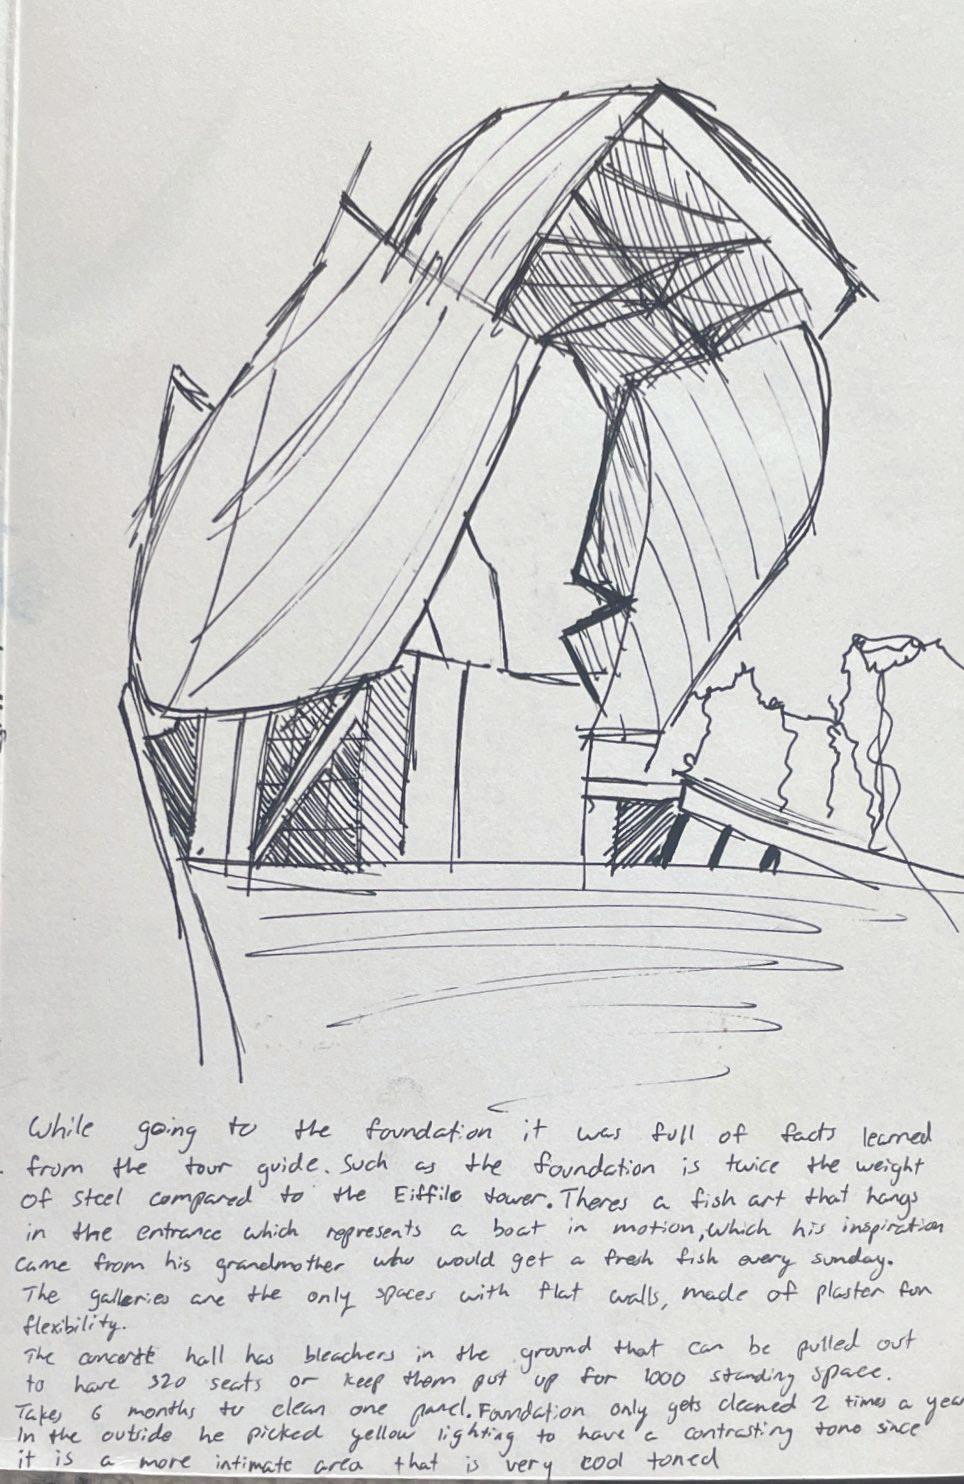 While going to the foundation it was full of facts learned
from the tour guide. Such as the foundation is twice the weight
of steel compared to the Eiffile tower. Theres a fish art that hangs
in the entrance which represents a boat in motion, which his inspiration
came from his grandmother who would get a fresh fish every sunday.
The galleries are the only spaces with flat walls, made of plaster for
flexibility.
The hall has bleachers in the ground that can be pulled out
to have 320 seats or keep them put up for 1000 standing space.
Takes 6 months to clean one panel. Foundation only gets cleaned 2 times a year
In the outside he picked yellow lighting to have a contrasting tone since
it is a more intimate area that is very cool toned